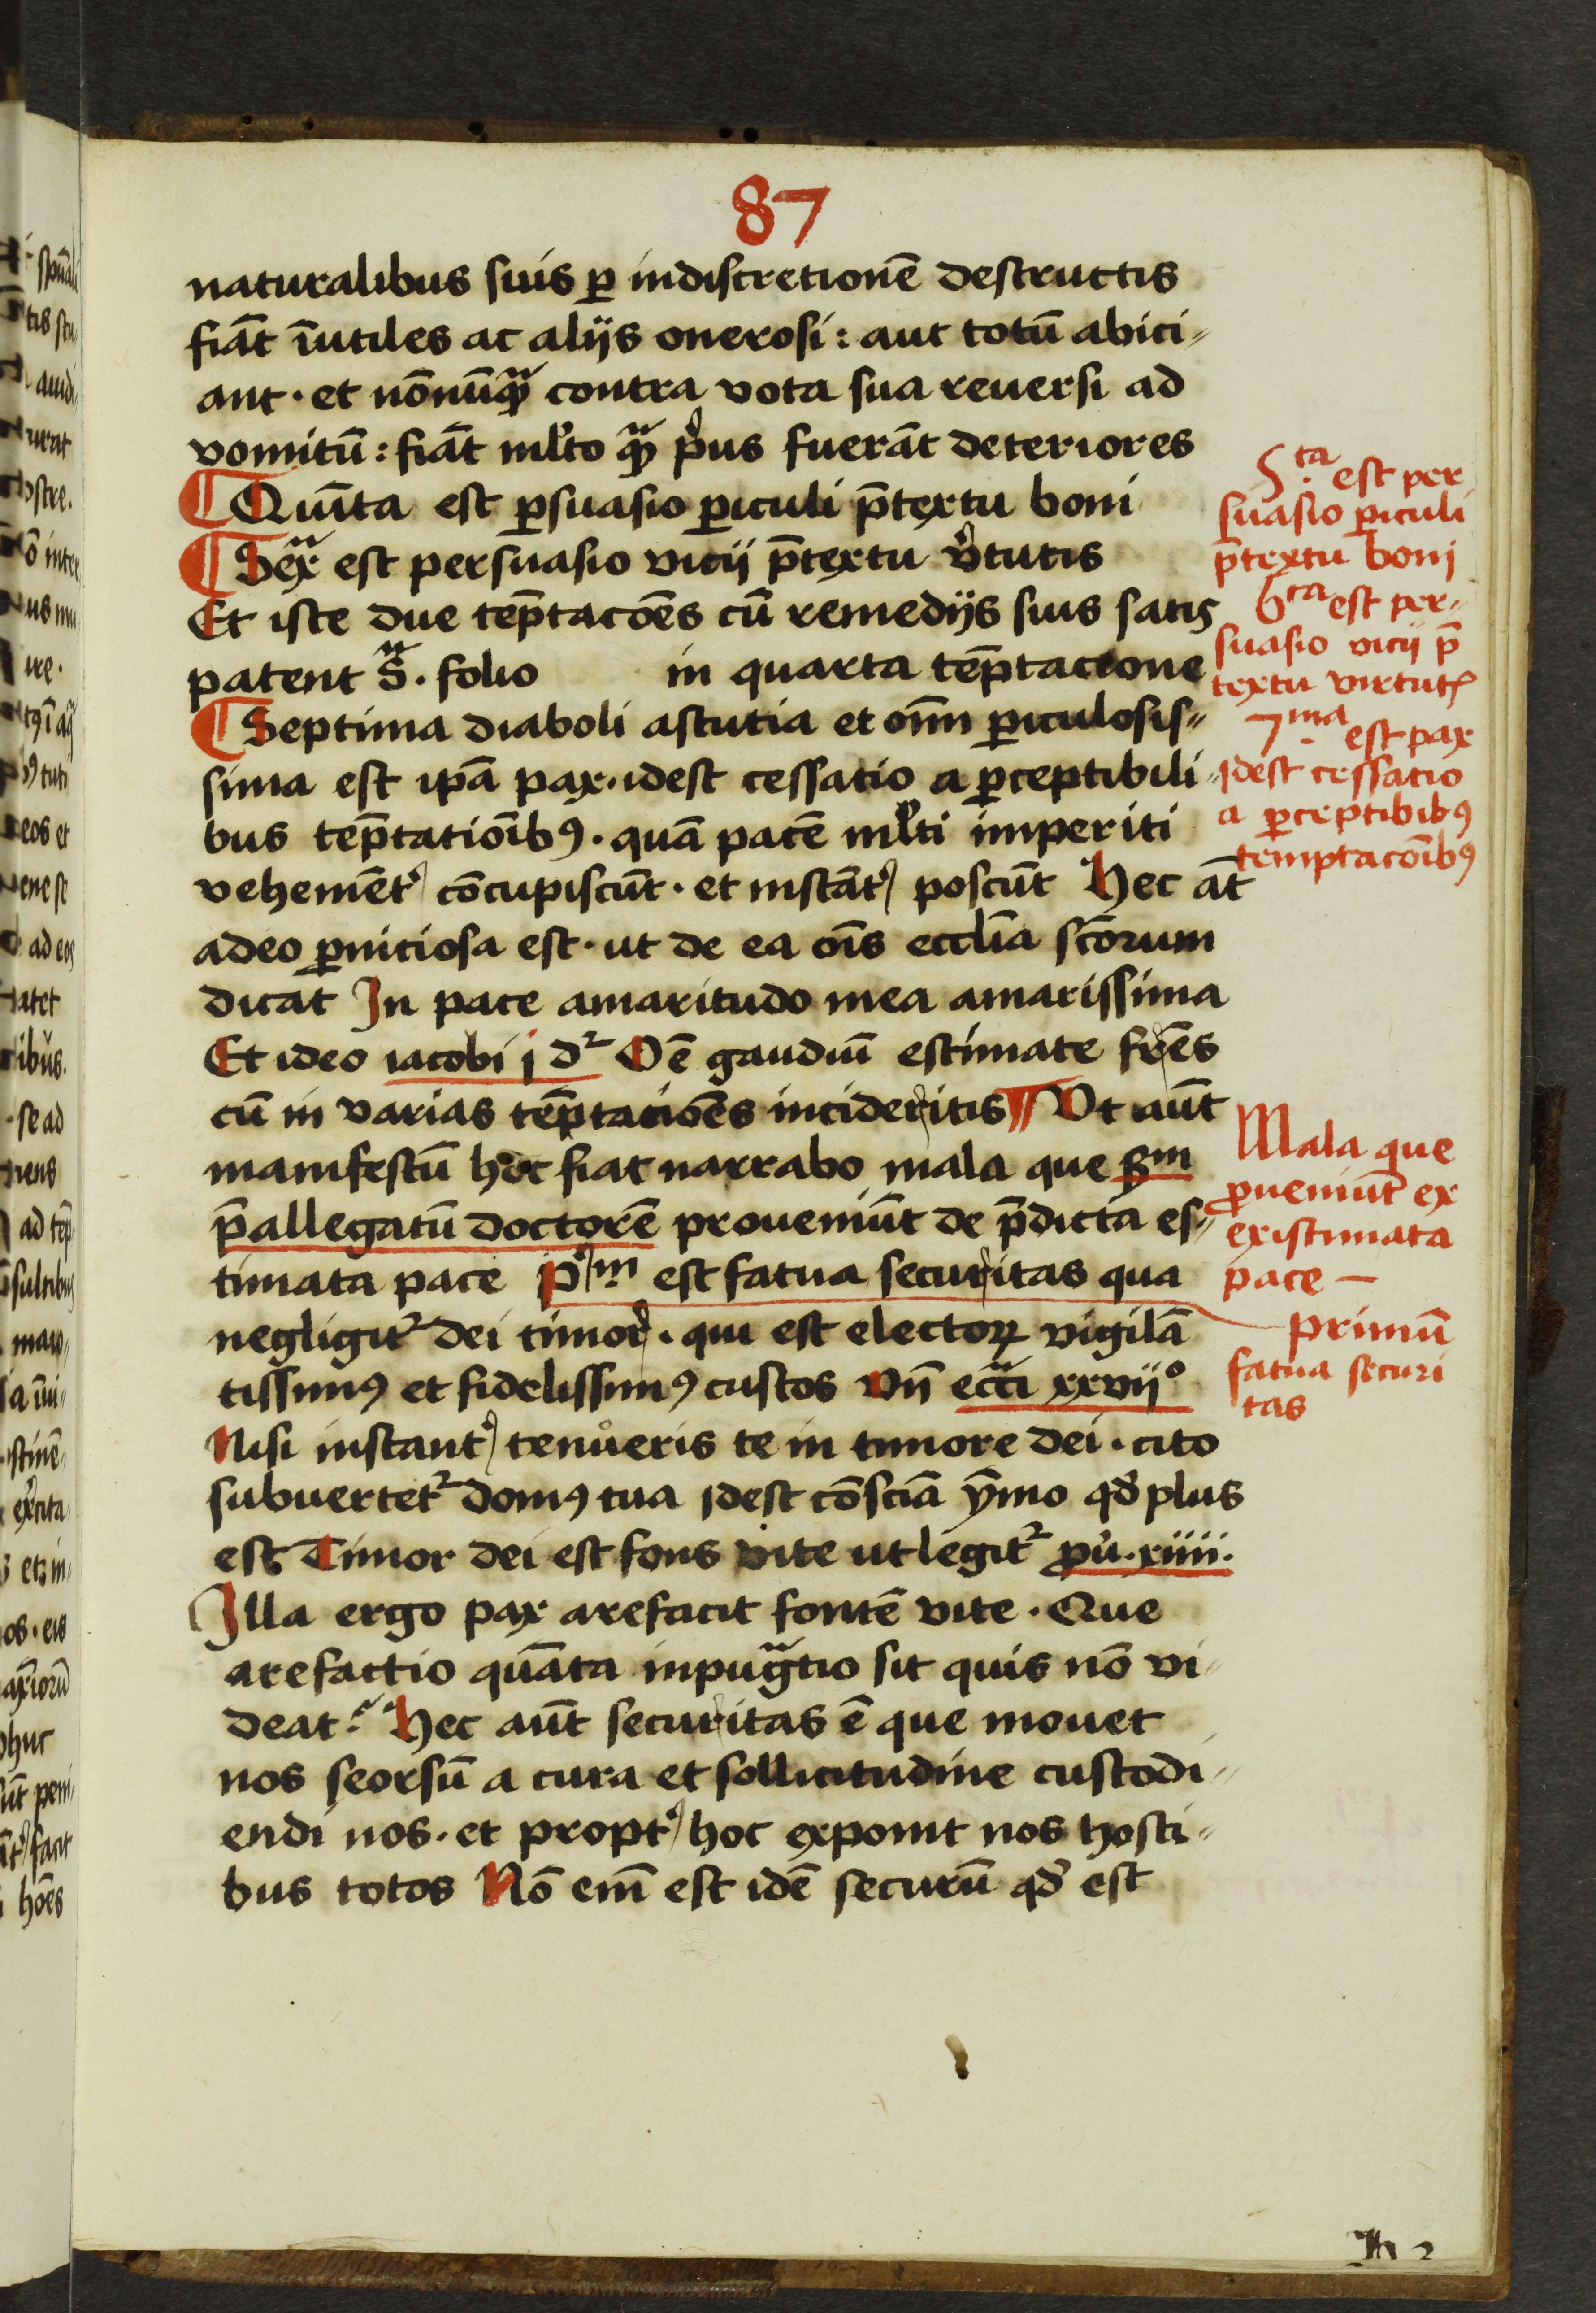 87
naturalibus suis ꝑ indiscretionē destructis
fiāt īutiles ac alijs onerosi: aut totū abici⸗
ant · et nōnūqᷓ contra vota sua reuersi ad
vomitū: fiāt ml̓to qᷓ pͥus fuerāt deteriores
¶ Quīta est ꝑsuasio ꝑiculi p̄textu boni
¶ Sexᷓ est persuasio vicij p̄textu v̓tutis
Et iste due tēp̄tacōēs cū remedijs suis satis
patent sᷓ. folio in quarta tēp̄tacione
¶ Septima diaboli astutia et oīm ꝑiculosis⸗
sima est ip̄a pax · idest cessatio a ꝑceptibili⸗
bus tēp̄tatiōibꝰ · quā pacē ml̓ti imperiti
vehemēt̓ cōcupiscūt · et instāt̓ poscūt Hec āt
adeo ꝑniciosa est · ut de ea oīs eccl̄ia sc̄orum
dicat In pace amaritudo mea amarissima
Et ideo iacobi j dᷣ Oē gaudiū estimate fr̄es
cū in varias tēp̄taciōēs incideritis ¶ Vt aūt
manifestū hoc fiat narrabo mala que ẜm
p̄allegatū doctorē proueniūt de p̄dicta es⸗
timata pace pͥm est fatua securitas qua
negligitᷣ dei timor · qui est electoꝝ vigilā
tissimꝰ et fidelissimꝰ custos Vn̄ eccᷓi xxvijº
Nisi instant̓ tenůeris te in timore dei · cito
subuertetᷣ domꝰ tua idest cōsciā ymo qd̓ plus
est Timor dei est fons vite ut legitᷣ ꝓu̓ · xiiii ·
Illa ergo pax arefacit fontē vite · Que
arefactio quāta inpugᷓtio sit quis nō vi⸗
deat? Hec aūt securitas ē que mouet
nos seorsū a cura et sollicitudine custodi⸗
endi nos · et propt̓ hoc exponit nos hosti⸗
bus totos Nō em̄ est idē securū qd̓ est
5ta est per
suasio ꝑiculi
p̄textu boni
6ta est per⸗
suasio vicij p̄
textu virtutꝭ
7ma est pax
idest cessatio
a ꝑceptibibꝰ
temptacōibꝰ
Mala que
ꝓueniūt ex
existimata
pace —
primū
fatua securi
tas